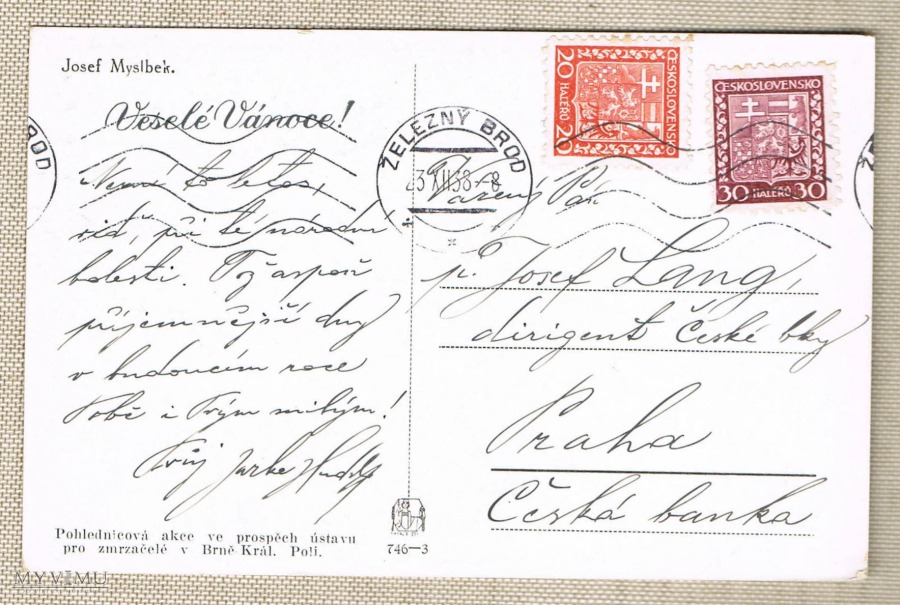 Josef Myslbek.
Veselé Vánoce!
Není to letos,
při té národní
bolesti. Tož aspoň
příjemnější dny
v budoucím roce
Tobě i Tvým milým!
Tvůj
Pohlednicová akce ve prospěch ústavu
pro zmrzačelé v Brně Král. Poli.
746—3
ŽELEZNÝ BROD
23 XII 38 -8
20 HALÉŘŮ 20
ČESKOSLOVENSKO
ČESKOSLOVENSKO
30 HALÉŘŮ 30
Vážený Pán
p. Josef Lang,
dirigent České bky
Praha
Česká banka
ROD
MYVIMU